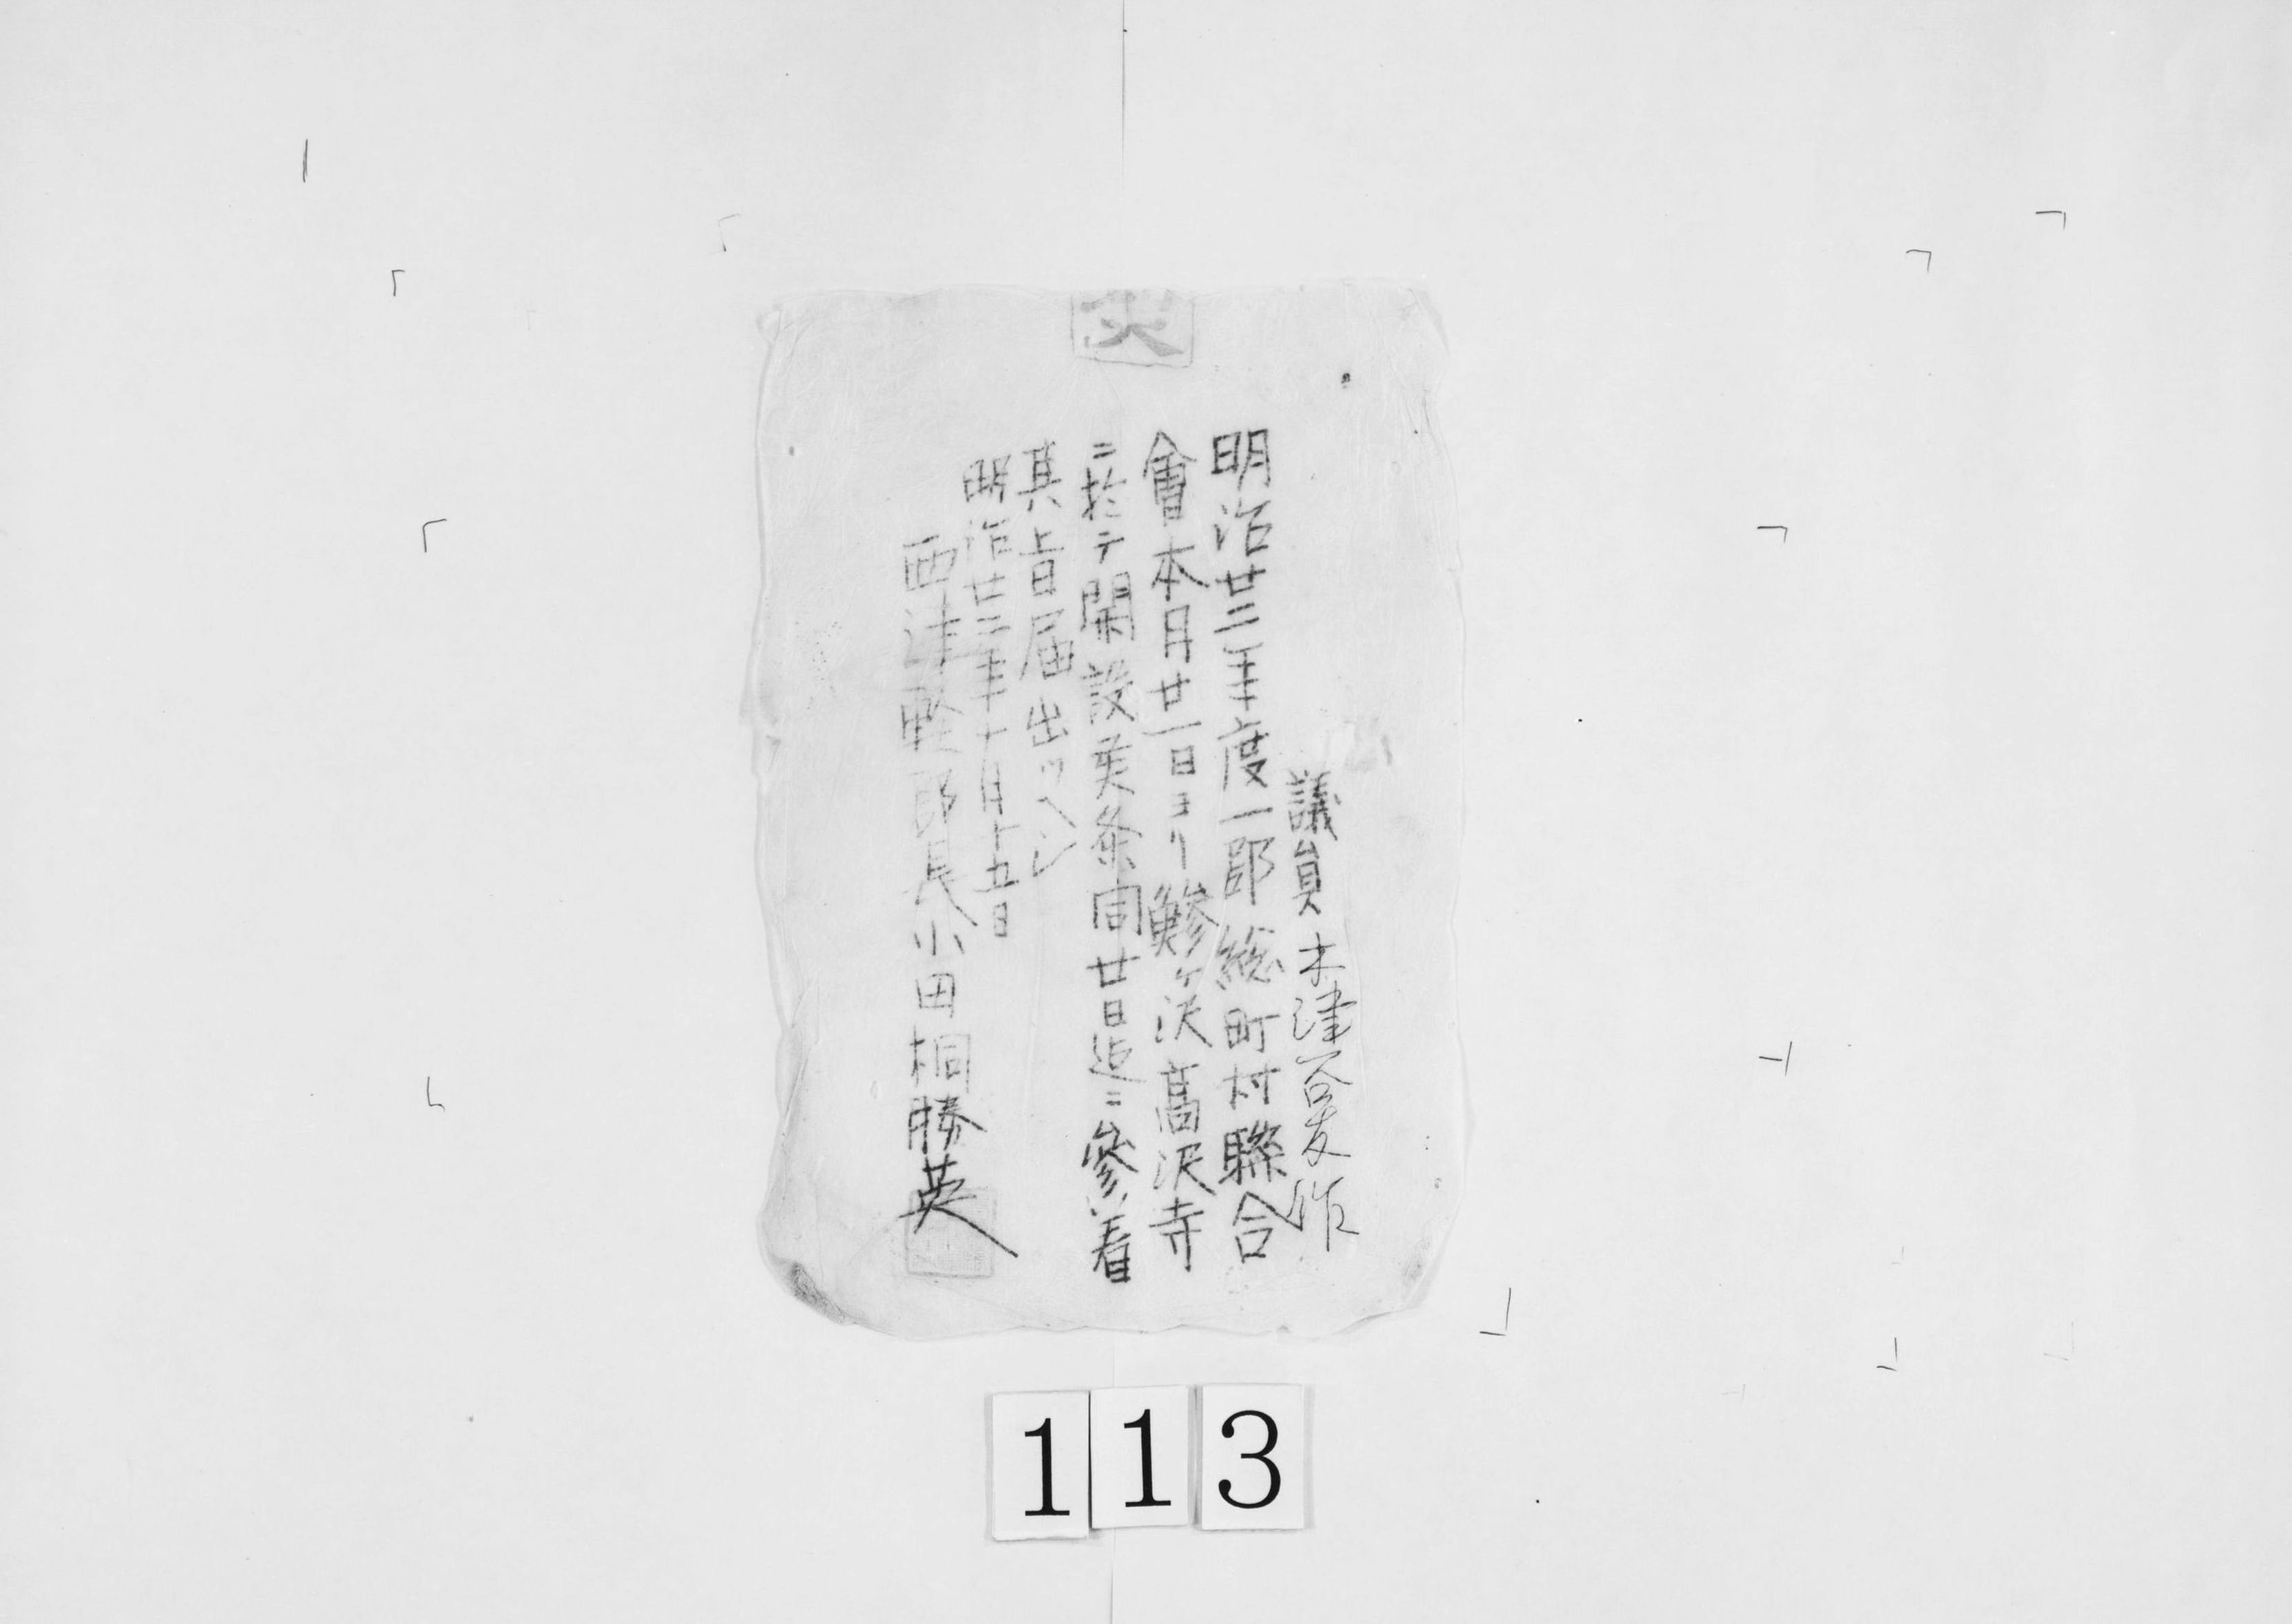 議員 木津谷愛作
明治廿二年度一郡総町村聯合
會本月廿一日ヨリ鰺ヶ沢高沢寺
ニ於テ開設候条同廿日迠ニ參着
其旨届出ツヘシ
明治廿二年十月十五日
西津軽郡長小田桐勝英
113